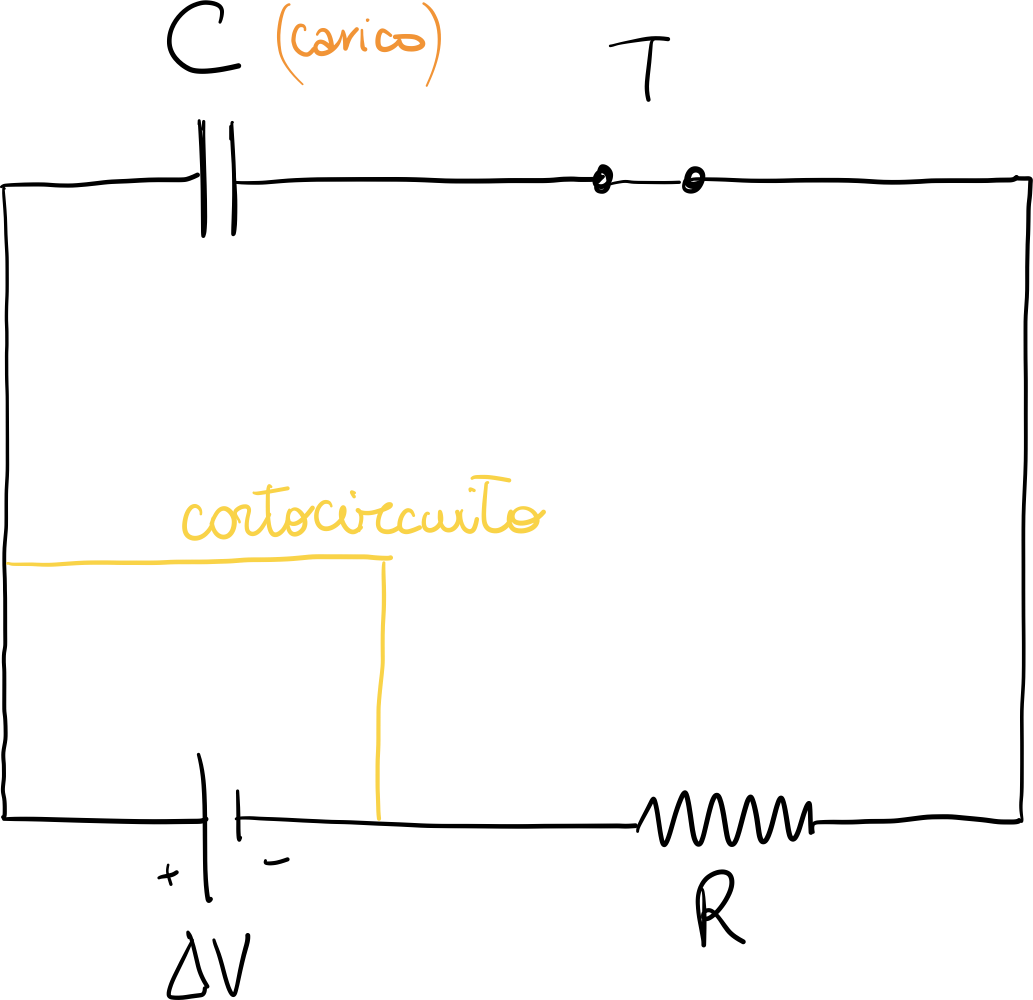 C (carico)
T
cortocircuito
+ -
ΔV
R